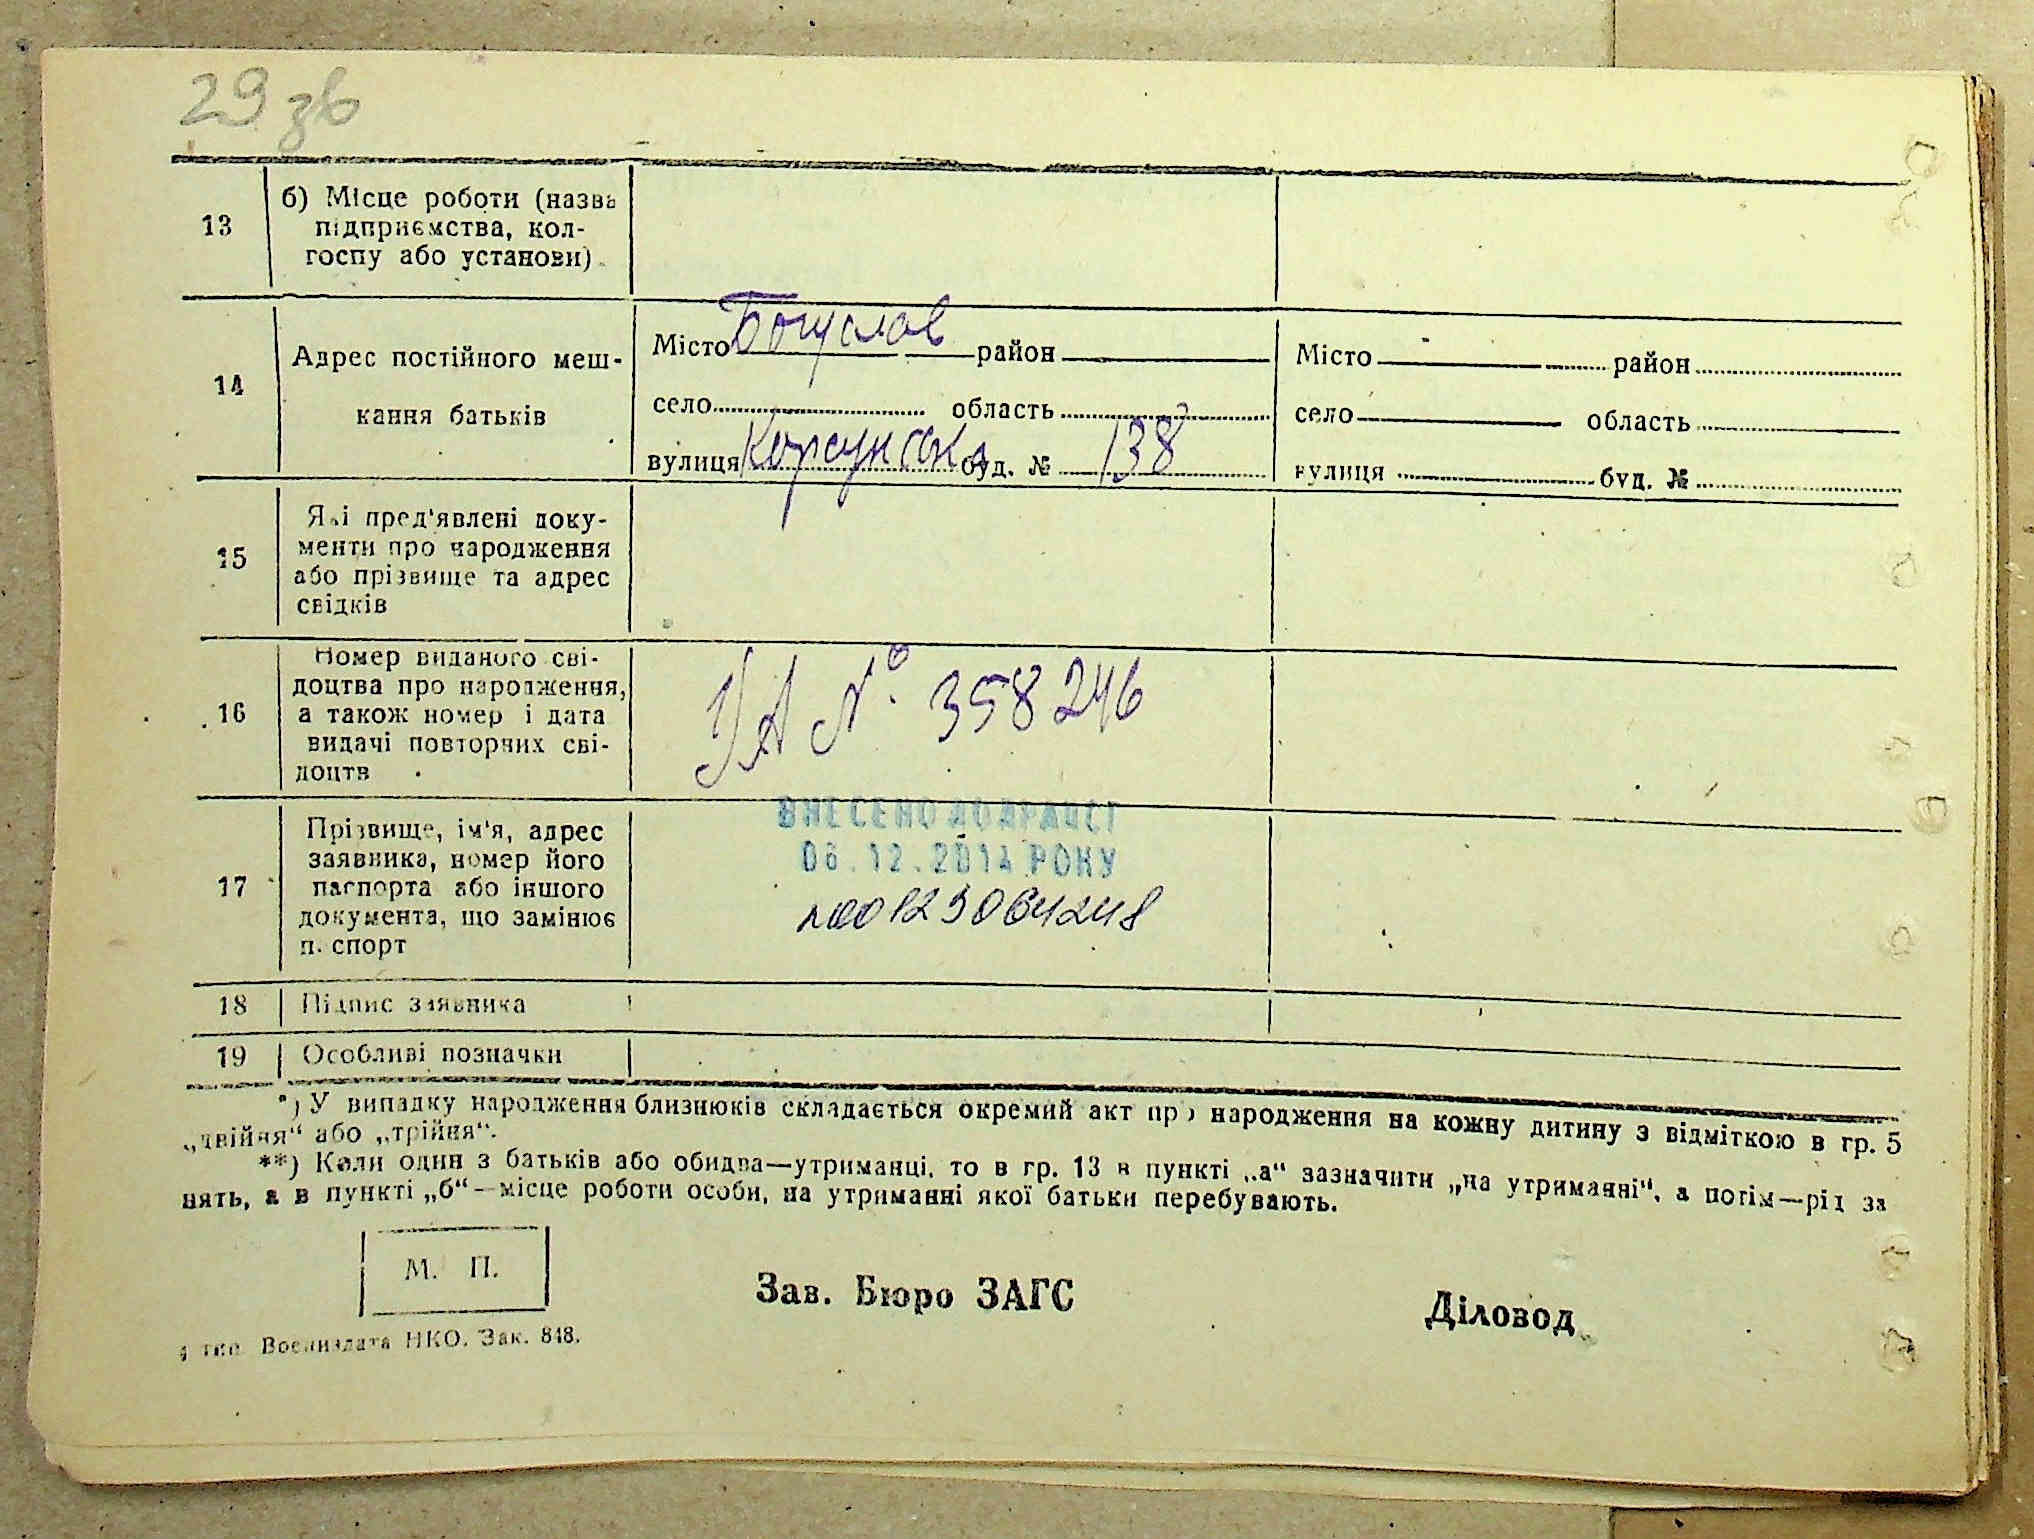 29 зв
13
б) Місце роботи (назва
підприємства, кол-
госпу або установи)
14
Адрес постійного меш-
кання батьків
Місто Богуслав район
село область
вулиця Корсунська буд. № 138
Місто район
село область
вулиця буд. №
15
Які пред'явлені доку-
менти про народження
або прізвище та адрес
свідків
16
Номер виданого сві-
доцтва про народження,
а також номер і дата
видачі повторних сві-
доцтв
УА № 358246
17
Прізвище, ім'я, адрес
заявника, номер його
паспорта або іншого
документа, що замінює
паспорт
ВНЕСЕНО ДО ДРАЦСГ
06.12.2014 РОКУ
18 Підпис заявника
19 Особливі позначки
*) У випадку народження близнюків складається окремий акт про народження на кожну дитину з відміткою в гр. 5
„двійня“ або „трійня“.
**) Коли один з батьків або обидва—утриманці, то в гр. 13 в пункті „а“ зазначити „на утриманні“, а потім—рід за
нять, а в пункті „б“—місце роботи особи, на утриманні якої батьки перебувають.
М. П.
Зав. Бюро ЗАГС
Діловод
4 тип. Воениздата НКО. Зак. 848.